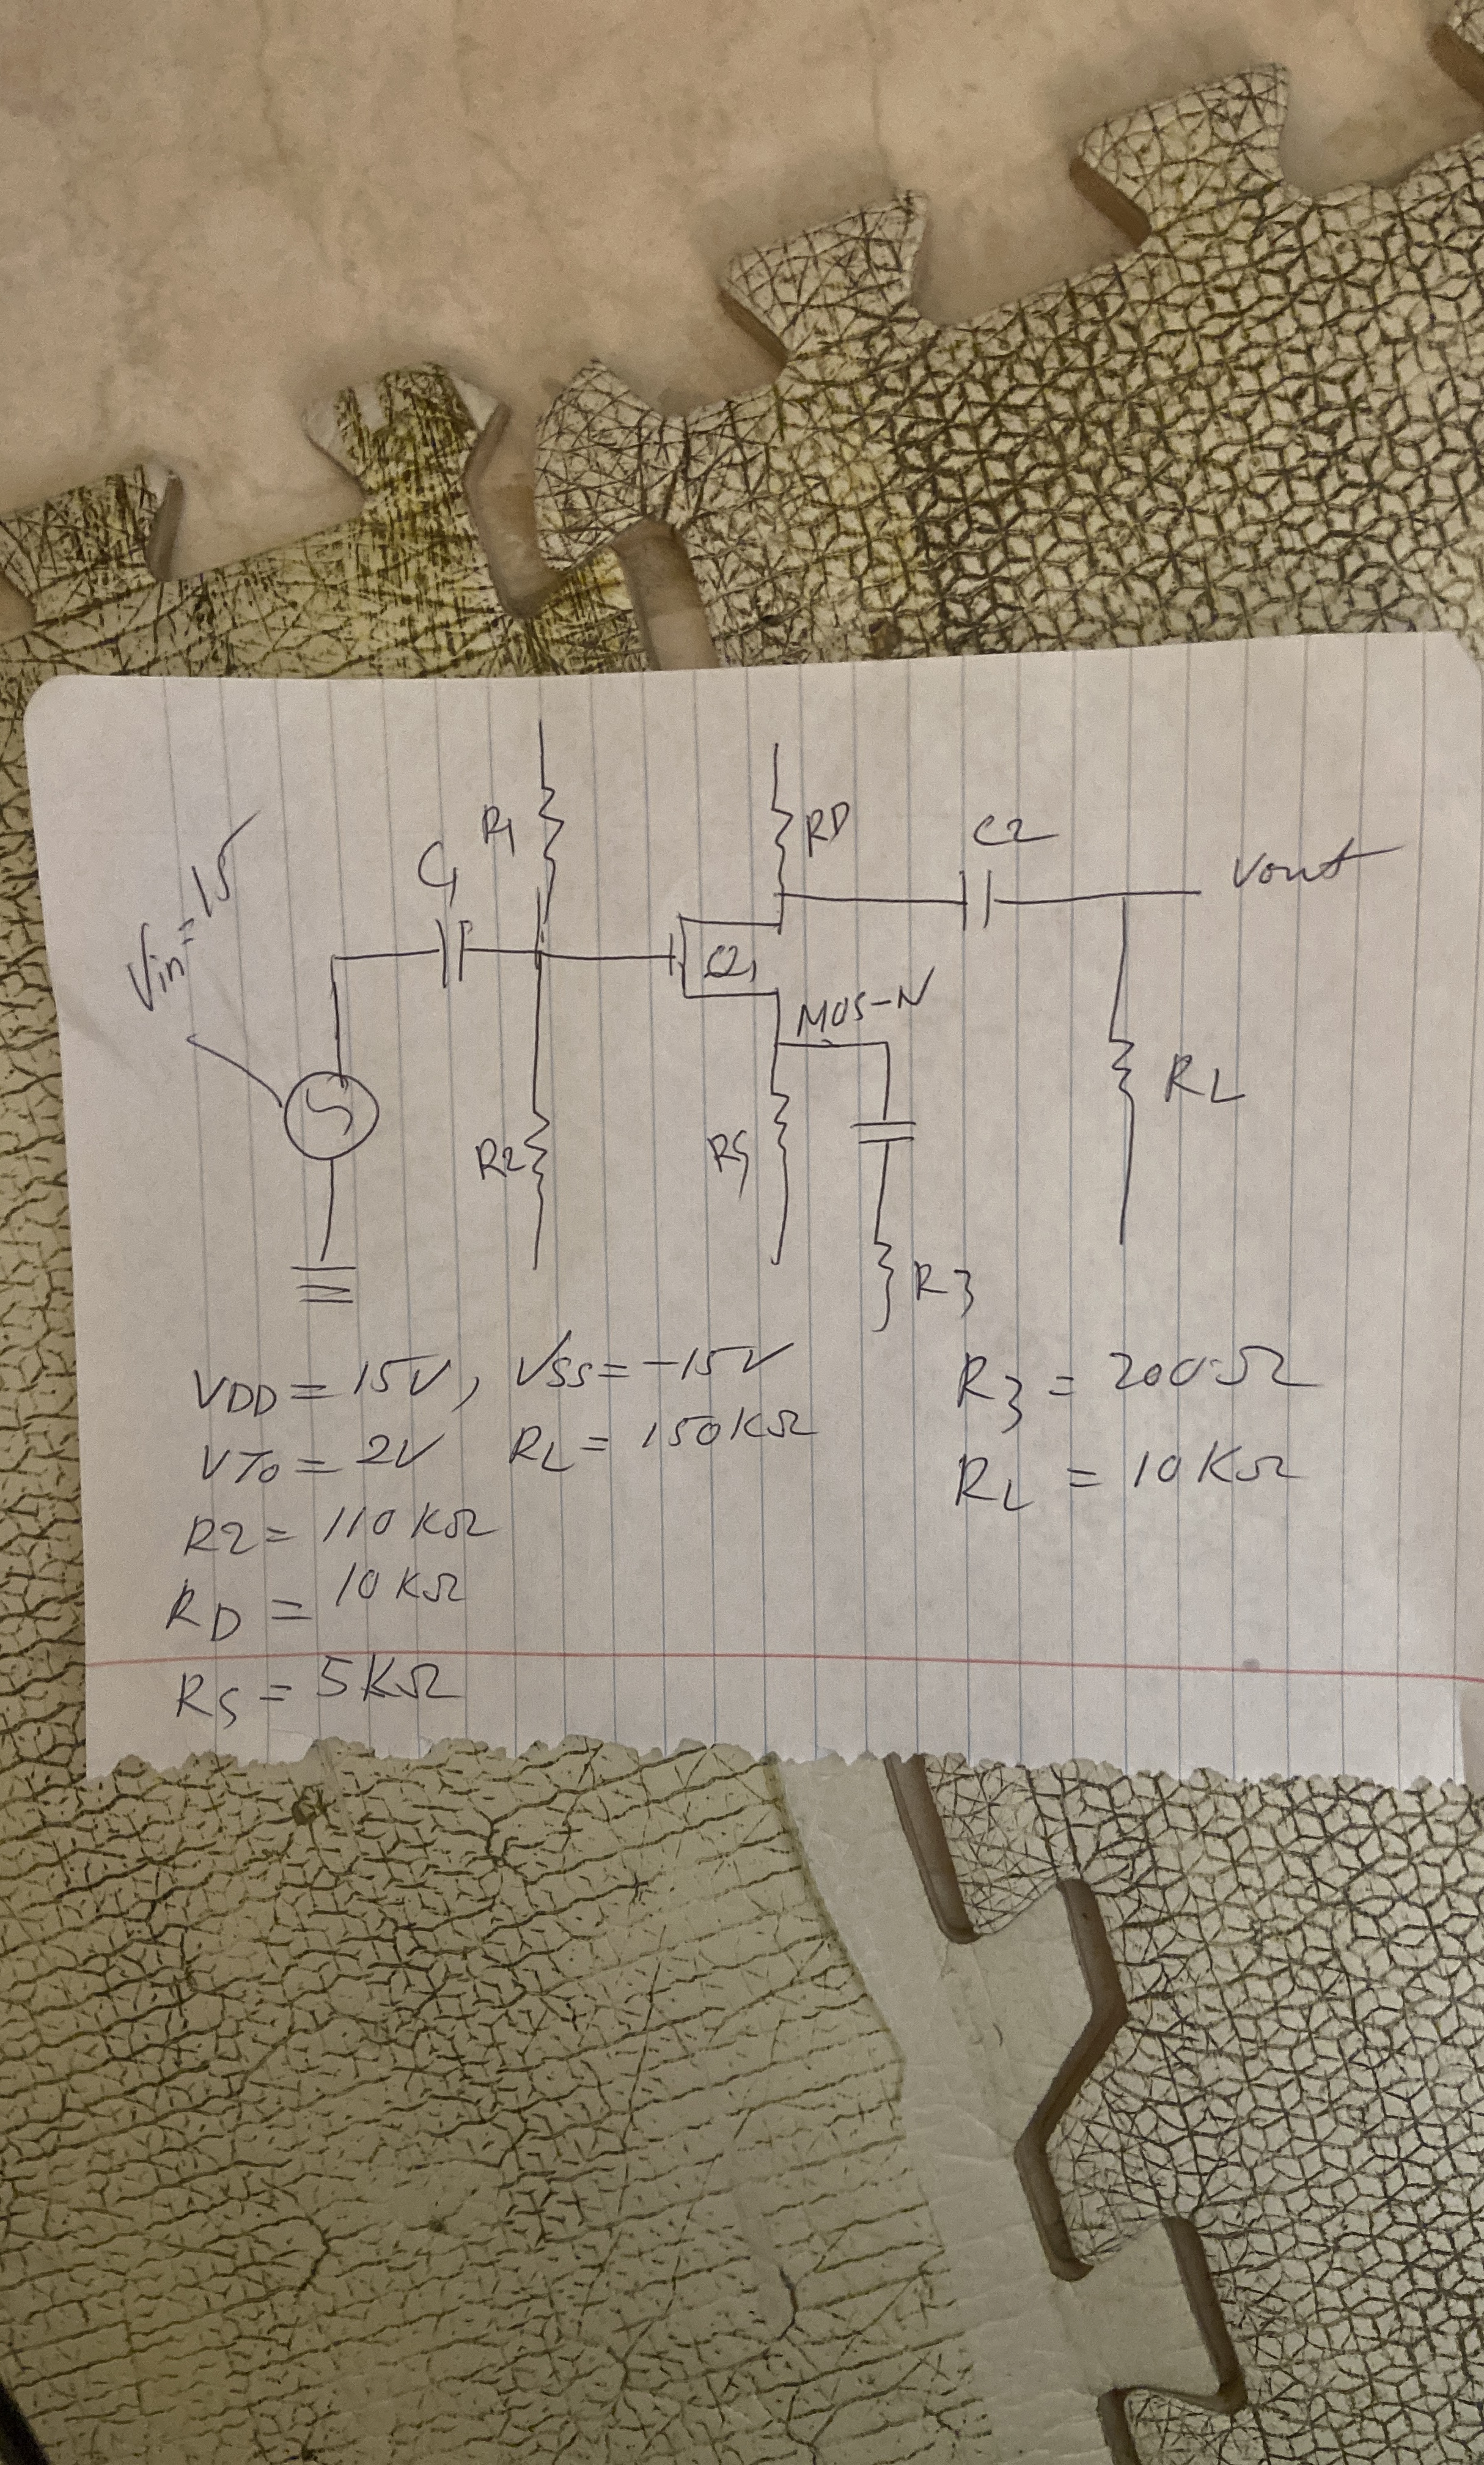 R1
RD
C2
C1
Vout
Vin = 15
Q1
MOS-N
RL
R2
RS
R3
VDD = 15V, VSS = -15V
R3 = 200Ω
VTo = 2V RL = 150KΩ
RL = 10KΩ
R2 = 110KΩ
RD = 10KΩ
RS = 5KΩ